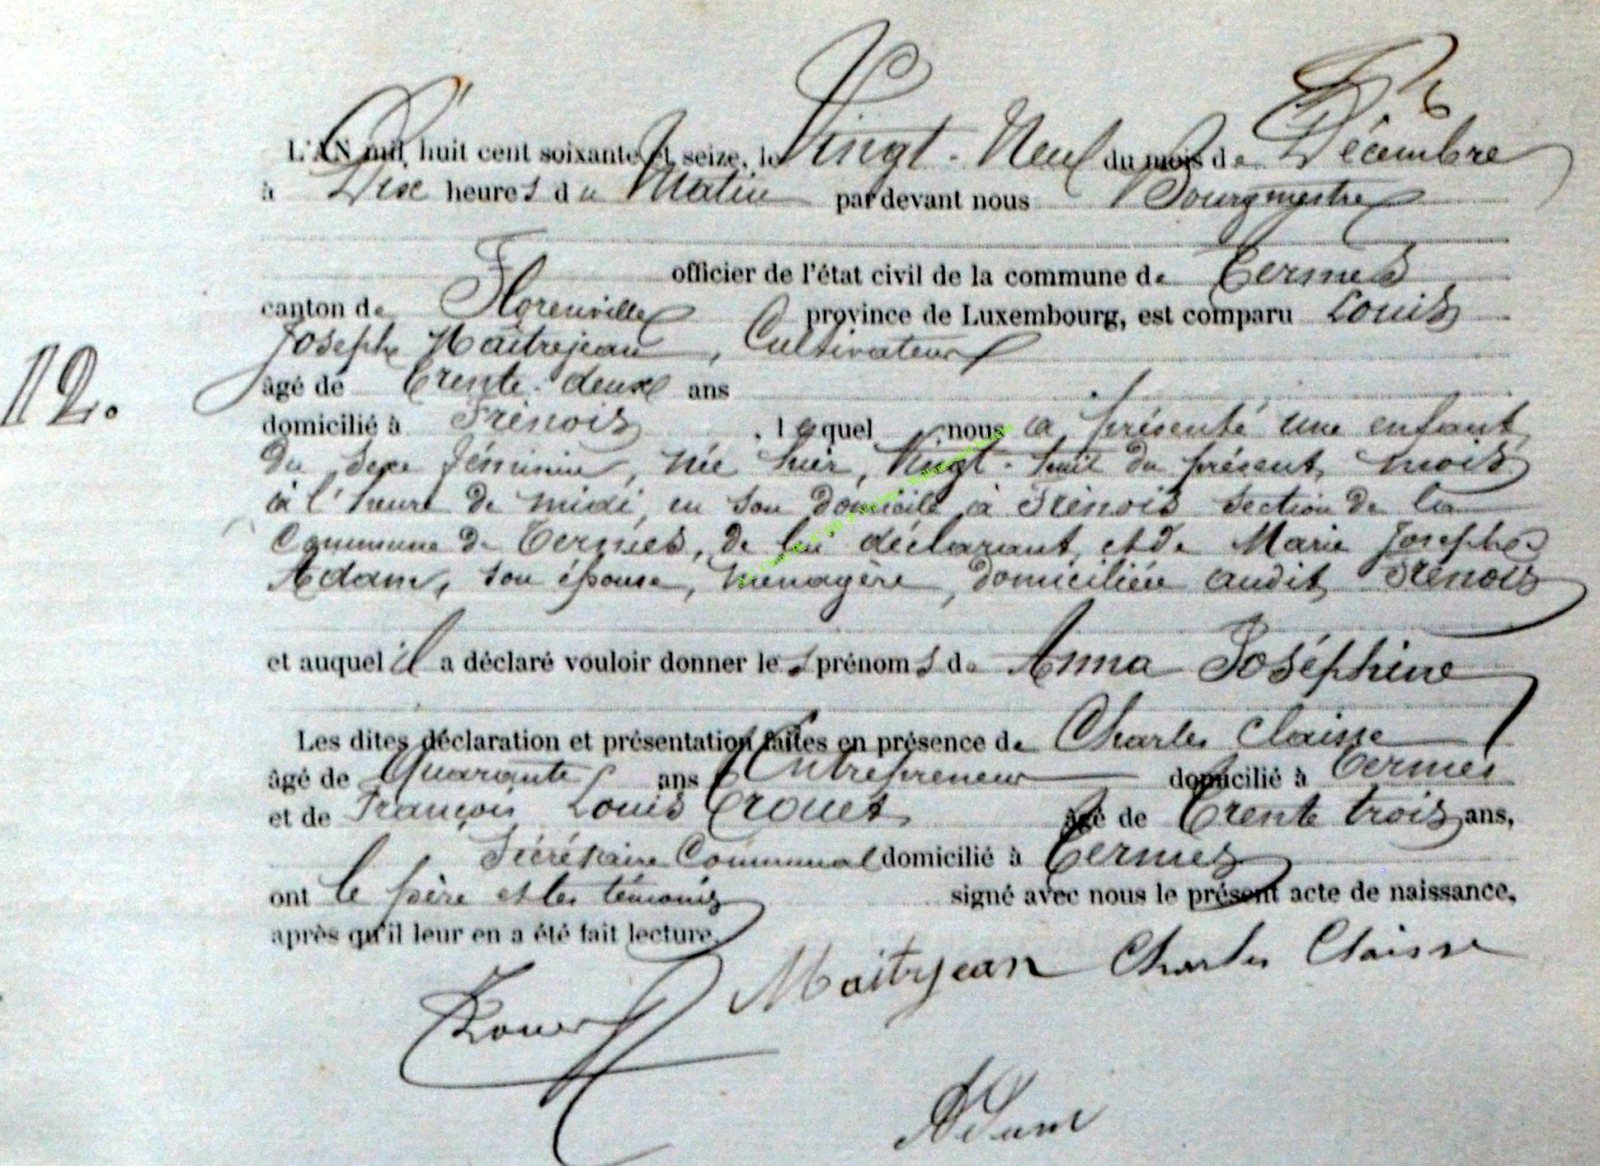 L'AN mil huit cent soixante et seize, le Vingt-Neuf du mois de Décembre
à Dix heures du Matin par devant nous Bourgmestre
officier de l'état civil de la commune de Termes
canton de Florenville province de Luxembourg, est comparu Louis
Joseph Maîtrejean, Cultivateur
âgé de Trente-deux ans
12.
domicilié à Frénois, lequel nous a présenté une enfant
du sexe féminin, née hier, Vingt-huit du présent mois
à l'heure de midi, en son domicile à Frénois section de la
Commune de Termes, de lui déclarant, et de Marie Josephe
Adam, son épouse, ménagère, domiciliée audit Frénois
et auquel il a déclaré vouloir donner les prénoms de Anna Joséphine
Les dites déclaration et présentation faites en présence de Charles Claisse
âgé de Quarante ans Entrepreneur domicilié à Termes
et de François Louis âgé de Trente trois ans,
Secrétaire Communal domicilié à Termes
ont le père et les témoins signé avec nous le présent acte de naissance,
après qu'il leur en a été fait lecture.
Maitrjean Charles Claisse